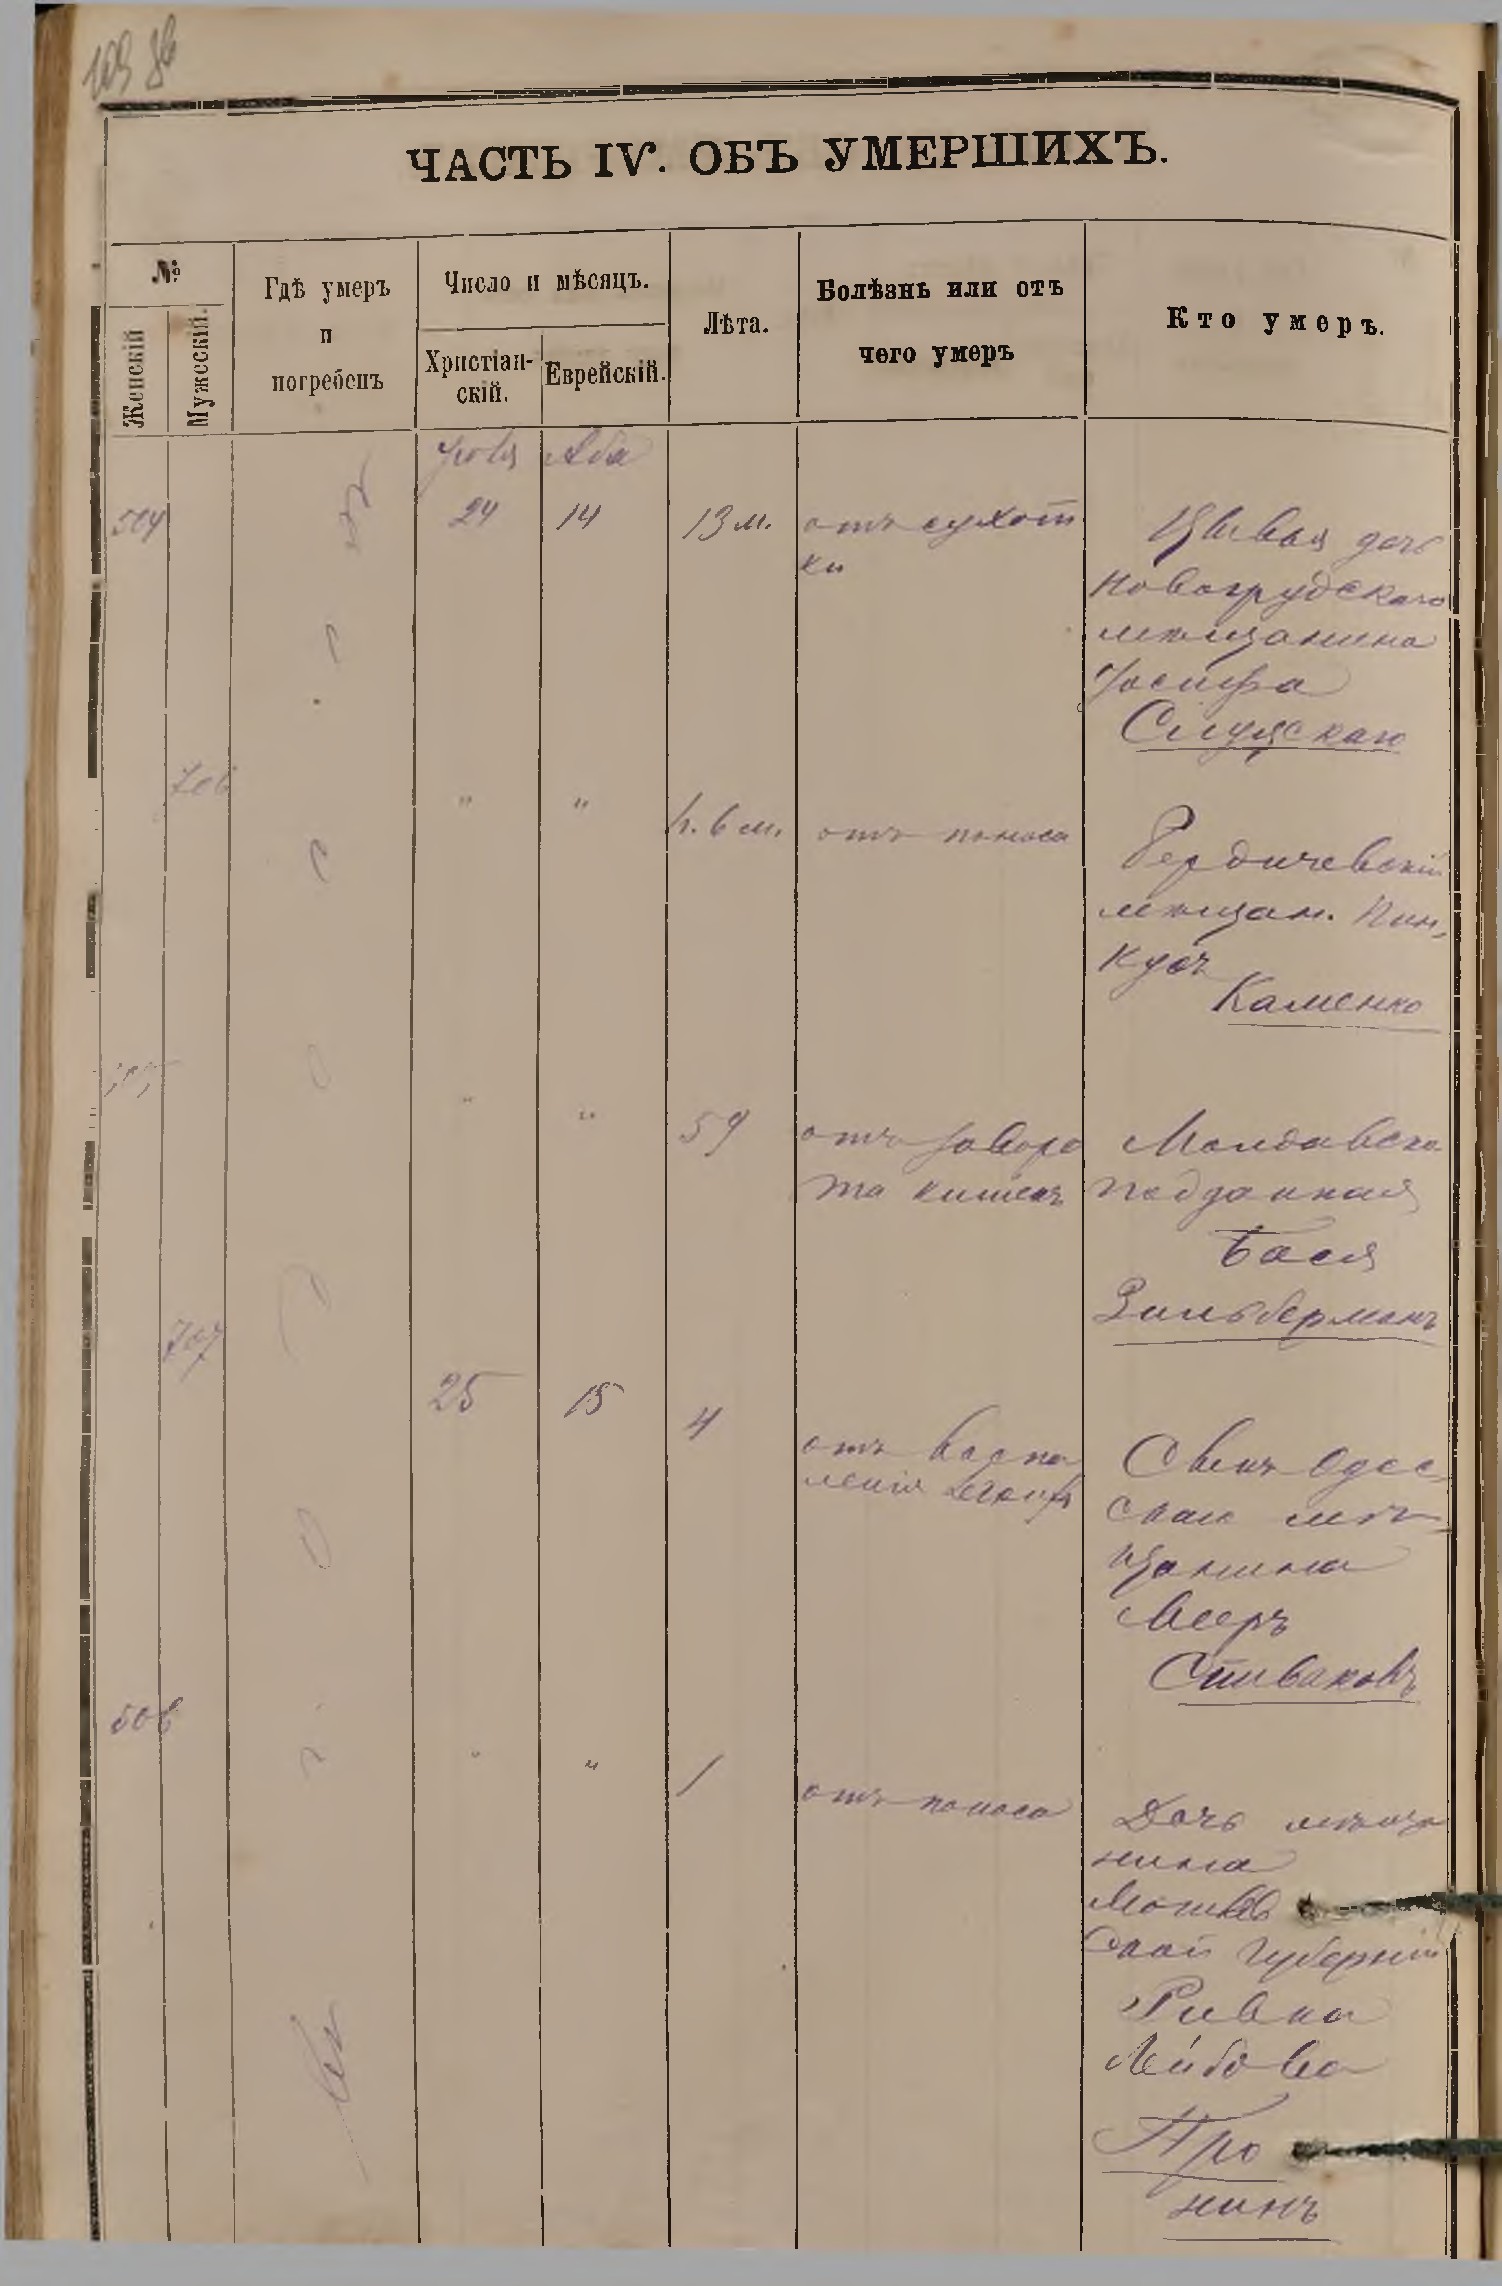 109 86
ЧАСТЬ IV. ОБЪ УМЕРШИХЪ.
№
Женскій
Мужескій.
Гдѣ умеръ
и
погребенъ
Число и мѣсяцъ.
Христіан-
скій.
Еврейскій.
Лѣта.
Болѣзнь или отъ
чего умеръ
Кто умеръ.
Іюля Аба
504 24 14 13 м. отъ сухот
ки
Цивья дочь
Новогрудскаго
мѣщанина
Іосифа
Слуцскаго
706 " " 6 м. отъ поноса
Бердичевскій
мѣщан. Пин-
кусъ
Каменко
" " 59 отъ заворо
та кишекъ
Молдавско
подданная
Бася
Зильберманъ
707 25 15 4 отъ воспа
ленія легкихъ
Сынъ Одес-
скаго мѣ-
щанина
Мееръ
Спиваковъ
506 " " 1 отъ поноса
Дочь мѣща
нина
Могилев
ской губерніи
Ривка
Лейбова
Про
нинъ